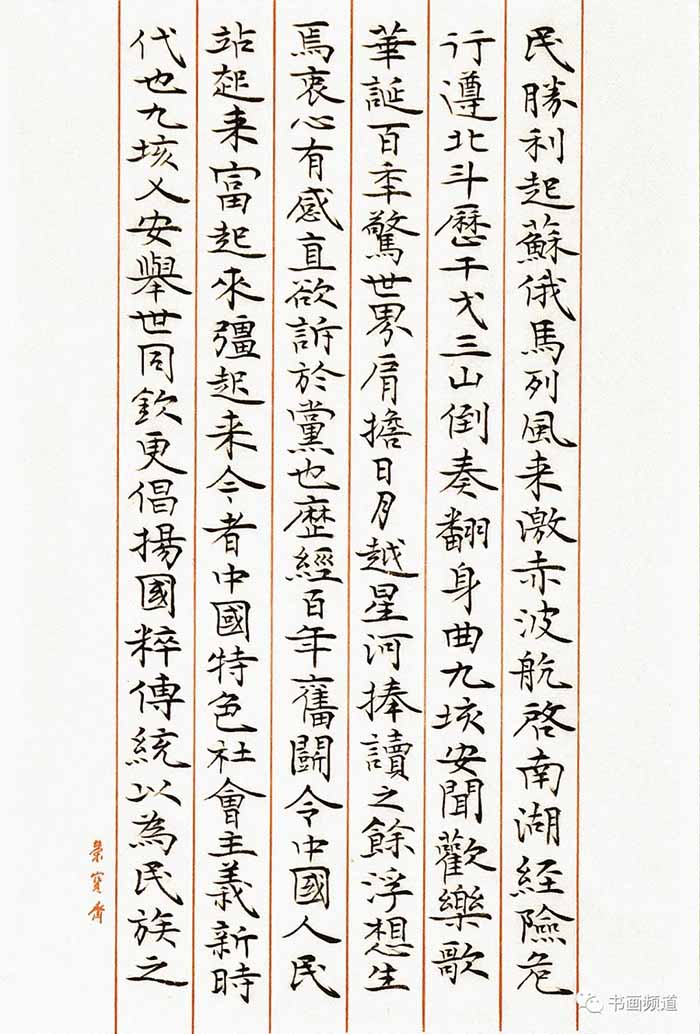 民勝利起蘇俄馬列風来激赤波航啓南湖経險危
行遵北斗歷干戈三山倒奏翻身曲九垓安聞歡樂歌
華誕百秊驚世界肩擔日月越星河捧讀之餘浮想生
焉衷心有感直欲訴於黨也歷經百年奮鬭令中國人民
站起来富起來彊起来今者中國特色社會主義新時
代也九垓乂安舉世同欽更倡揚國粹傳統以為民族之
榮寳齋
书画频道